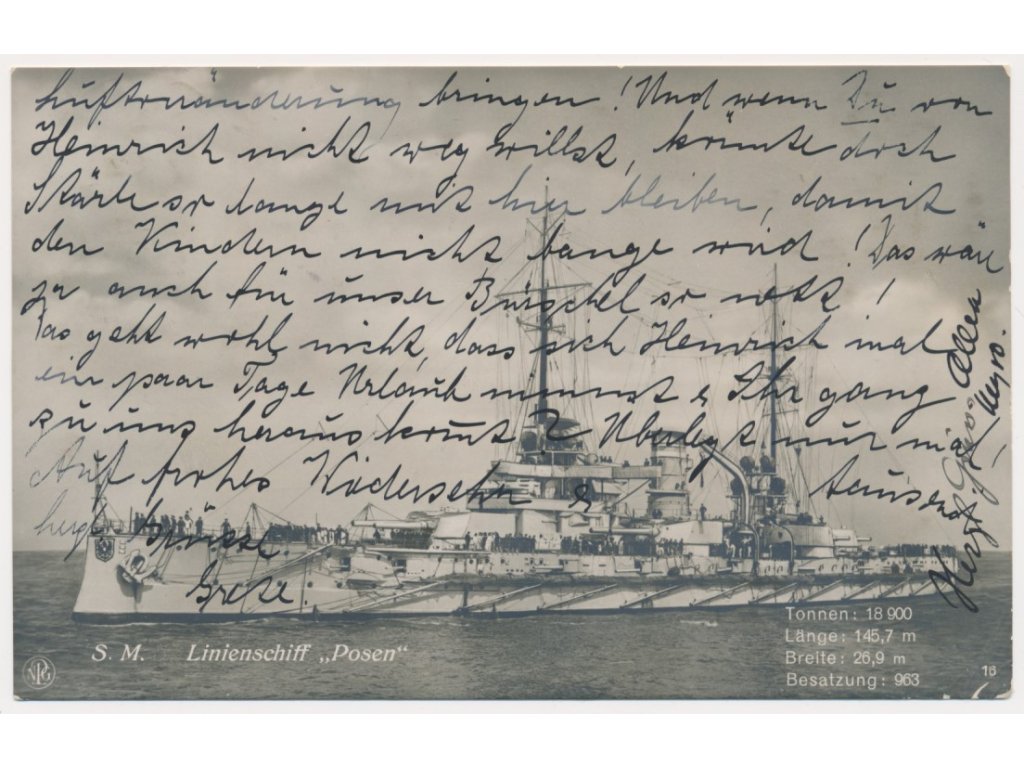 Luftveränderung bringen! Und wenn Du von
Heinrich nicht weg willst, könnte doch
so lange mit hier bleiben, damit
den Kindern nicht bange wird! Das wäre
ja auch für unser Bürschel so nett!
Das geht wohl nicht, dass sich Heinrich mal
ein paar Tage Urlaub nimmt & Ihr ganz
zu uns heraus kommt? Überlegt nur mal!
Auf frohes Wiedersehen & tausend
herzl. Grüsse.
Grete.
Herzl. Gruss Allen
S. M. Linienschiff „Posen“
Tonnen: 18 900
Länge: 145,7 m
Breite: 26,9 m
Besatzung: 963
NPG
16